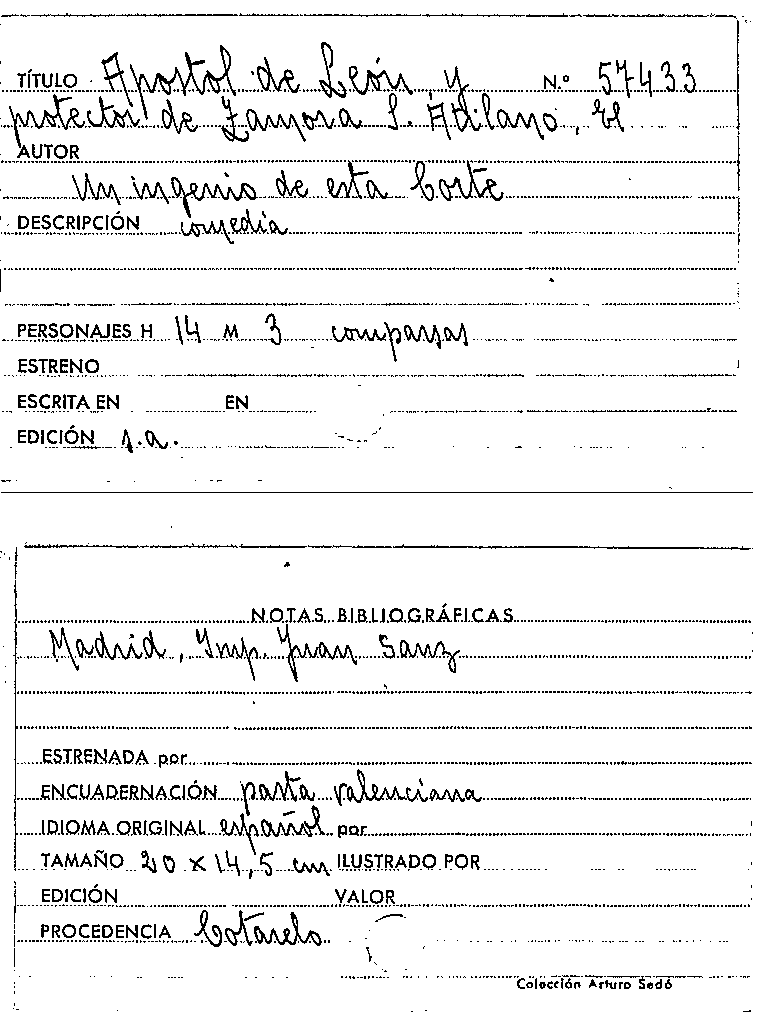 TÍTULO Apostol de León, y N.º 57433
protector de Zamora S. Atilano, El
AUTOR
Un ingenio de esta Corte
DESCRIPCIÓN comedia
PERSONAJES H 14 M 3 comparsas
ESTRENO
ESCRITA EN EN
EDICIÓN s.a.
NOTAS BIBLIOGRÁFICAS
Madrid, Imp. Juan Sanz
ESTRENADA por
ENCUADERNACIÓN pasta valenciana
IDIOMA ORIGINAL español por
TAMAÑO 20 x 14,5 cm ILUSTRADO POR
EDICIÓN VALOR
PROCEDENCIA Cotarelo
Colección Arturo Sedó